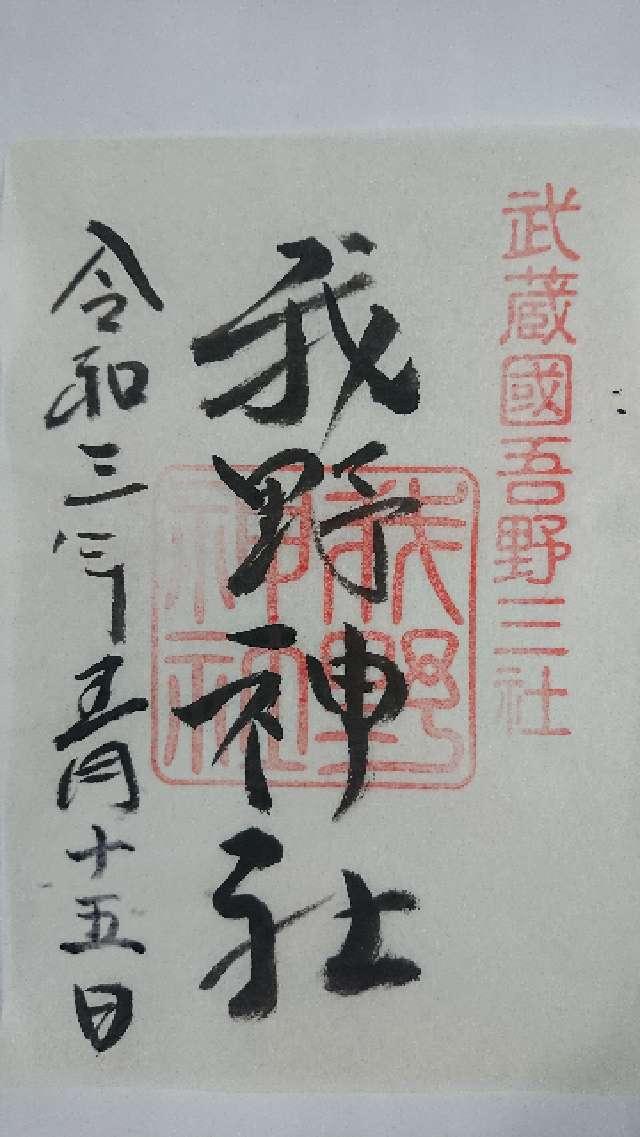 武蔵國吾野三社
我野神社
我野神社
令和三年五月十五日